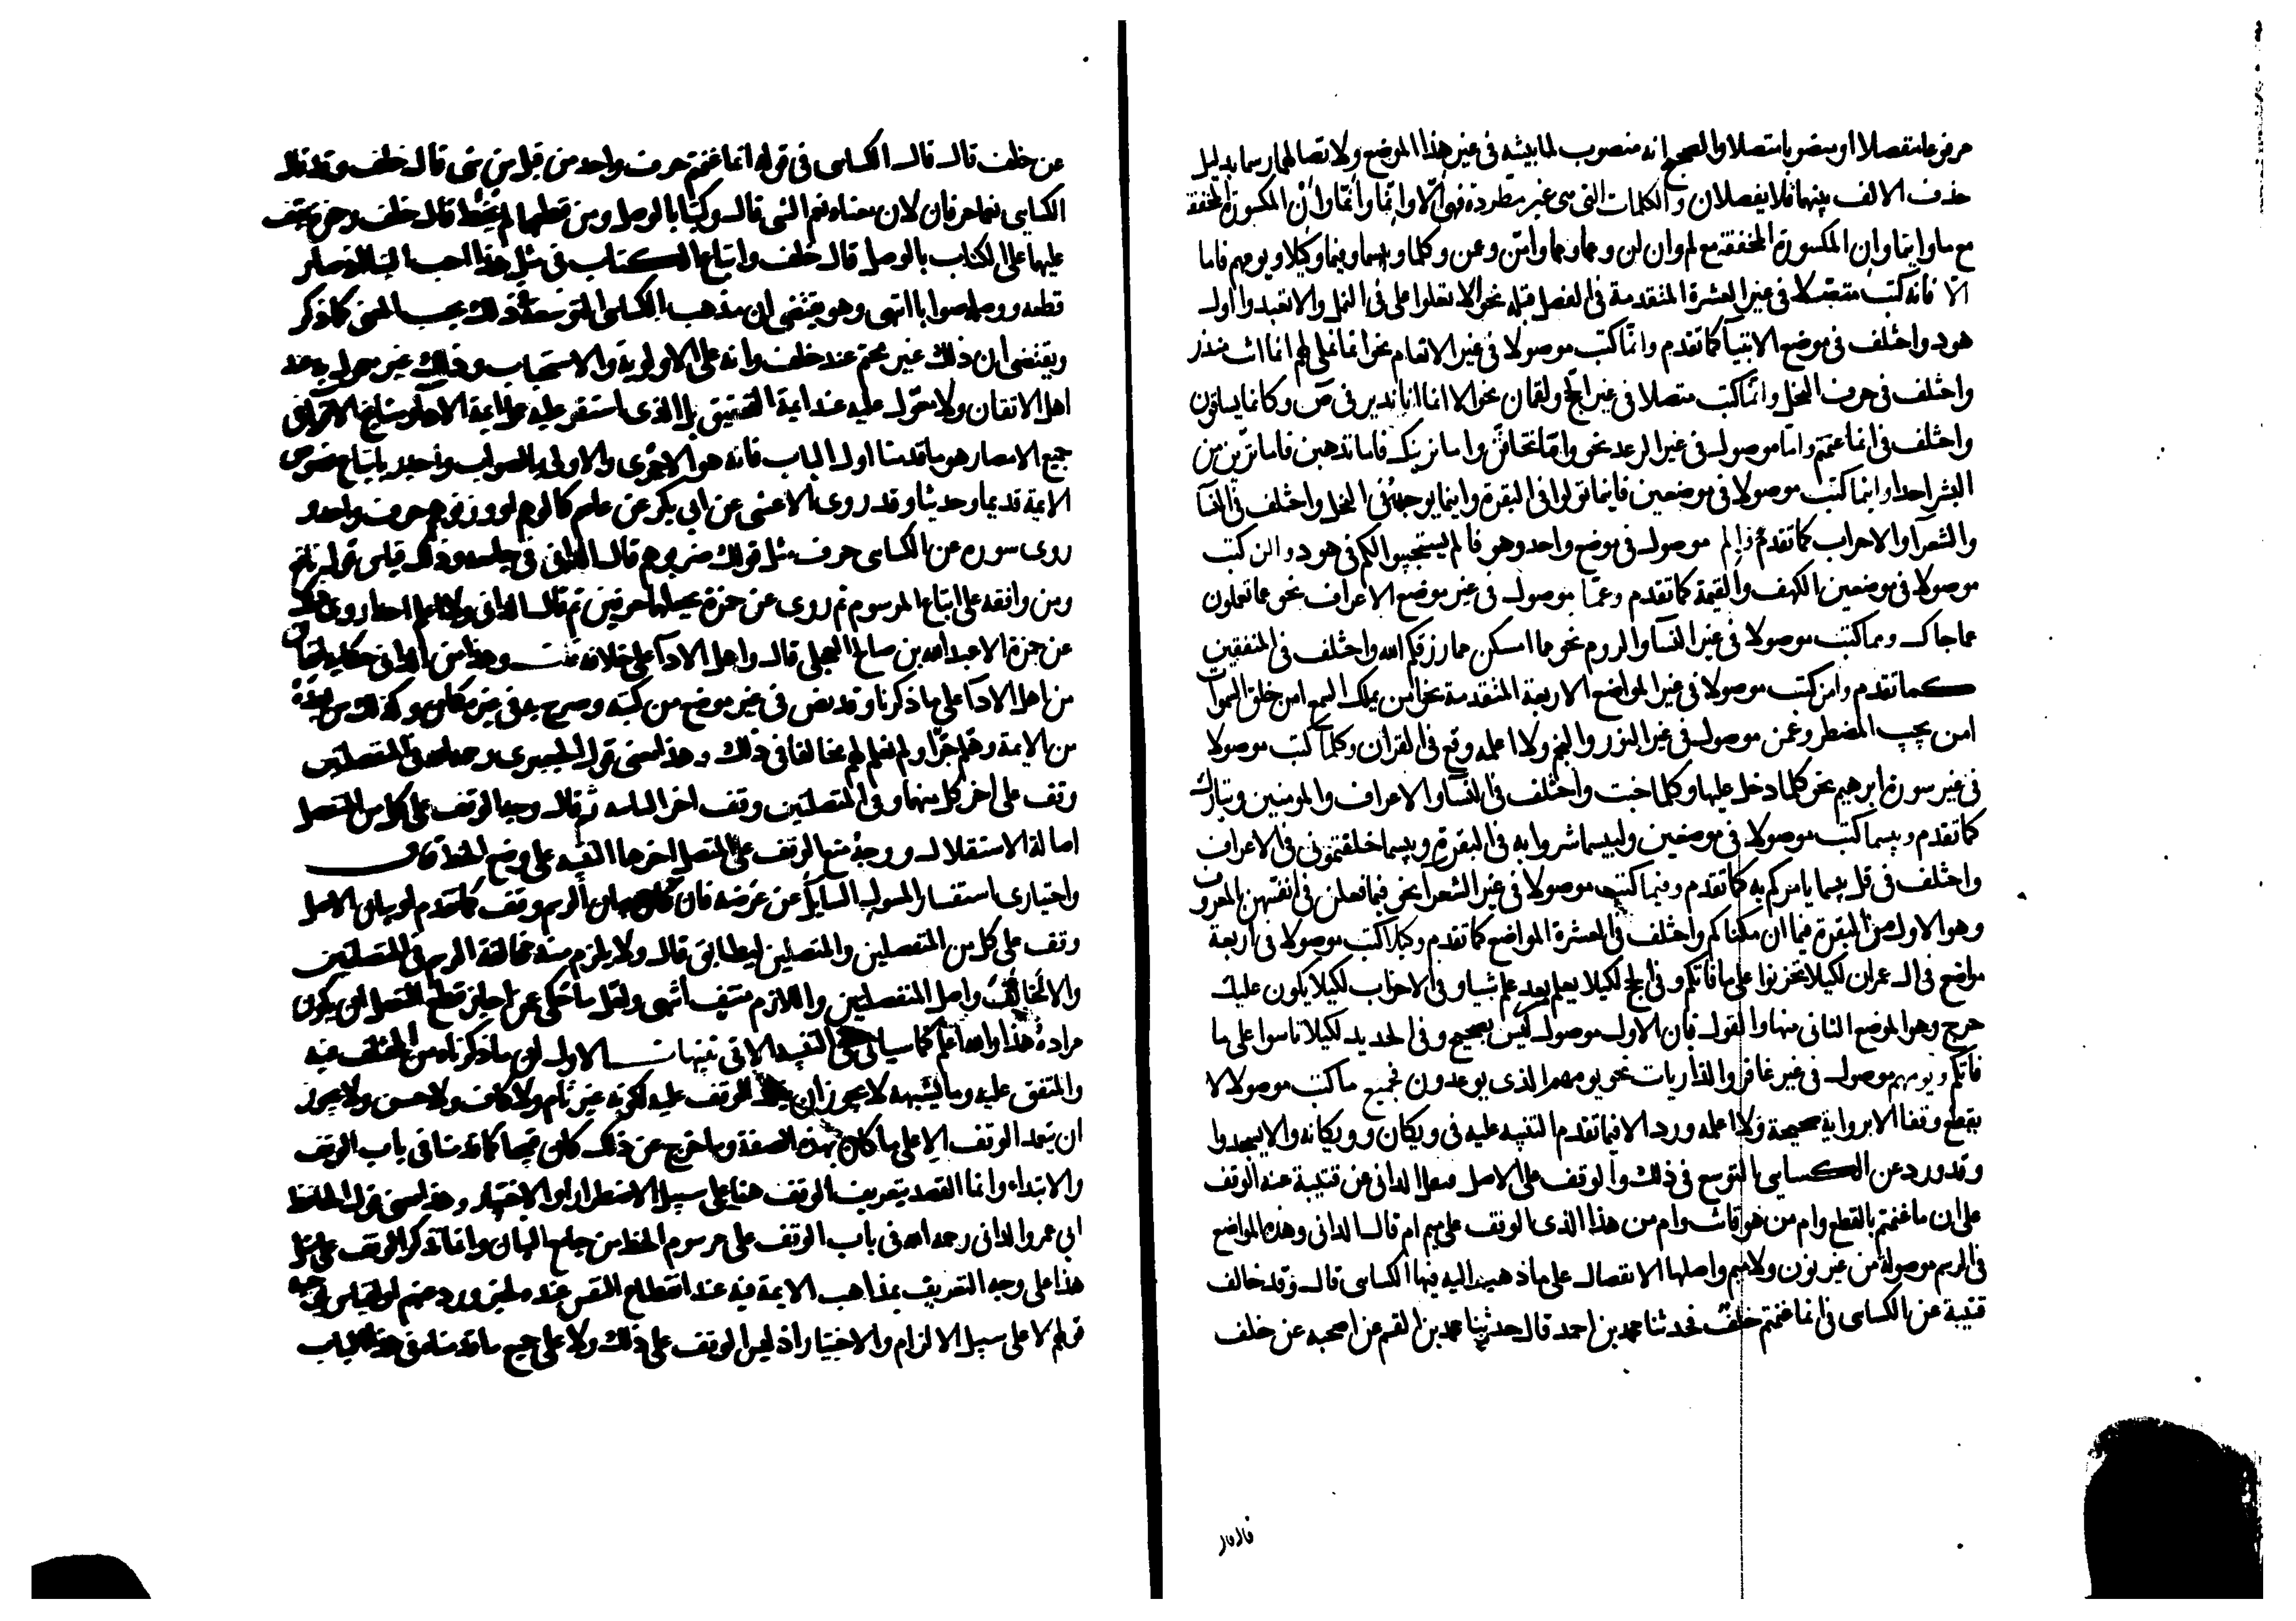 مرفوعا منفصلا او منصوبا متصلا والصحيح انه منصوب لما بيناه في غير هذا الموضع ولاتصالهما رسما بدليل
حذف الالف بينهما فلا يفصلان والكلمات التي هي غير مطردة فهي الا وانما وانما وان المكسورة المخففة
مع ما واينما وان المكسورة المخففة مع لم وان لن وعما ومما وامن وعن وكلما وبيسما وفيما وكيلا ويومهم فاما
الا فانه كتب متصلا في غير العشرة المتقدمة في الفصل قبله نحو الا تعلوا على في النمل والا تعبدوا اول
هود واختلف في موضع الانبيا كما تقدم وانما كتب موصولا في غير الانعام نحو انما نملي لهم انما انت منذر
واختلف في حرف النحل وانما كتب متصلا في غير الحج ولقمان نحو الا انما انا نذير في ص وكانما يساقون
واختلف في انما غنمتم واما موصول في غير الرعد نحو واما تخافن واما نرينك فاما تذهبن فاما ترين من
البشر احدا واينما كتب موصولا في موضعين فاينما تولوا في البقرة واينما يوجهه في النحل واختلف في النسا
والشعرا والاحزاب كما تقدم فالم موصول في موضع واحد وهو فالم يستجيبوا لكم في هود والن كتب
موصولا في موضعين الكهف والقيمة كما تقدم وعما موصول في غير موضع الاعراف نحو عما تعملون
عما جاك ومما كتب موصولا في غير النسا والروم نحو مما امسكن مما رزقكم الله واختلف في المنفقين
كما تقدم وامن كتب موصولا في غير المواضع الاربعة المتقدمة نحو امن يملك السمع امن خلق السموات
امن يجيب المضطر وعمن موصول في غير النور والنجم ولا اعلمه وقع في القران وكلما كتب موصولا
في غير سورة ابرهيم نحو كلما دخل عليها وكلما خبت واختلف في النسا والاعراف والمومنين وتبارك
كما تقدم وبيسما كتب موصولا في موضعين ولبيسما شروا به في البقرة وبيسما خلفتموني في الاعراف
واختلف في قل بيسما يامركم به كما تقدم وفيما كتب موصولا في غير الشعرا نحو فيما فعلن في انفسهن بالمعروف
وهو الاول من البقرة فيما ان مكناكم واختلف في العشرة المواضع كما تقدم وكيلا كتب موصولا في اربعة
مواضع في ال عمران لكيلا تحزنوا على ما فاتكم وفي الحج لكيلا يعلم بعد علم شيا وفي الاحزاب لكيلا يكون عليك
حرج وهو الموضع الثاني منها والقول فان الاول موصول ليس بصحيح وفي الحديد لكيلا تاسوا على ما
فاتكم ويومهم موصول في غير غافر والذاريات نحو يومهم الذي يوعدون فجميع ما كتب موصولا لا
يقطع وقفا الا برواية صحيحة ولا اعلمه ورد الا فيما تقدم التنبيه عليه في ويكان وويكانه والا يسجدوا
وقد ورد عن الكسايي التوسع في ذلك والوقف على الاصل فنقل الداني عن قتيبة عنه الوقف
على ان ما غنمتم بالقطع وام من هو قانت وام من هذا الذي الوقف على ميم ام قال الداني وهذه المواضع
في الرسم موصولة من غير نون ولا ميم واصلها الانفصال على ما ذهب اليه فيها الكسايي قال وقد خالف
قتيبة عن الكسايي في انما غنمتم خلف فحدثنا محمد بن احمد قال حدثنا محمد بن القسم عن اصحبه عن خلف
قال قال
عن خلف قال قال الكسايي في قوله انما غنمتم حرف واحد من قبل من شي قال خلف وقد قال
الكسايي نعما حرفان لان معناه نعم الشي قال وكتبا بالوصل ومن قطعهما لم يخط قال خلف وحمزة يقف
عليها على الكتاب بالوصل قال خلف واتباع الكتاب في مثل هذا احب الينا اذ صار
قطعه ووصله صوابا انتهى وهو يقتضي ان مذهب الكسايي التوسعة في ذلك بحسب المعنى كما ذكر
ويقتضي ان ذلك غير محتم عند خلف وانه على الاولوية والاستحباب وذلك غير معول به عند
اهل الاتقان ولا معول عليه عند ايمة التحقيق بل الذي استقر عليه عمل ايمة الادا ومشايخ الاقرا في
جميع الامصار هو ما قدمنا اول الباب فانه هو الاحرى والاولى بالصواب واجدر باتباع نصوص
الايمة قديما وحديثا وقد روى الاعشى عن ابي بكر عن عاصم كالوهم او وزنوهم حرف واحد و
روى سورة عن الكسايي حرف مثل قولك ضربوهم قال الداني في جامعه وذلك قياس قول نافع
ومن وافقه على اتباع المرسوم ثم روى عن حمزة يجعلهما حرفين ثم قال الداني ولا اعلم احدا روى ذلك
عن حمزة الا عبد الله بن صالح العجلي قال واهل الادا على خلافه قلت وهذا من الداني حكاية اتفاق
من اهل الادا على ما ذكرنا وقد نص في غير موضع من كتبه وصرح به في غير مكان وكذلك من بعده
من الايمة وهلم جرا ولم نعلم لهم مخالفا في ذلك وهذا معنى قول الجعبري وجماعه في المنفصلين
وقف على اخر كل منهما وفي المتصلين وقف اخر الثانيه ثم قال وجه الوقف على كل من المنفصل
اصالة الاستقلال ووجه منع الوقف على المتصل اخرها التنبيه على وضع الخط قال
واختياري استفسار المسول السايل عن غرضه فان كان بيان الرسم وقف كما تقدم او بيان الاصل
وقف على كل من المنفصلين والمتصلين ليطابق قال ولا يلزم منه مخالفة الرسم في المتصلين
والا لخالف واصل المنفصلين واللازم منتف انتهى ولعل ما حكي عن اجاز قطع المتصل ان يكون
مراده هذا والله اعلم كما سياتي في التنبيه الاتي تنبيهات الاول ان ما ذكرناه من المختلف فيه
والمتفق عليه وما يشبهه لا يجوز ان الوقف عليه لكونه غير تام ولا كاف ولا حسن ولا يجوز
ان يتعمد الوقف الا على ما كان بهذه الصفة وما خرج عن ذلك كان قبيحا كما قدمنا في باب الوقف
والابتداء وانما القصد بتعريف الوقف هنا على سبيل الاضطرار او الاختبار وهذا معنى قول الحافظ
ابي عمرو الداني رحمه الله في باب الوقف على مرسوم الخط من جامع البيان وانما نذكر الوقف على مثل
هذا على وجه التعريف بمذاهب الايمة فيه عند انقطاع النفس عنده لخبر ورد عنهم او لقياس يوجبه
قولهم لا على سبيل الالزام والاختيار اذ ليس الوقف على ذلك ولا على جميع ما قدمناه في هذا الباب